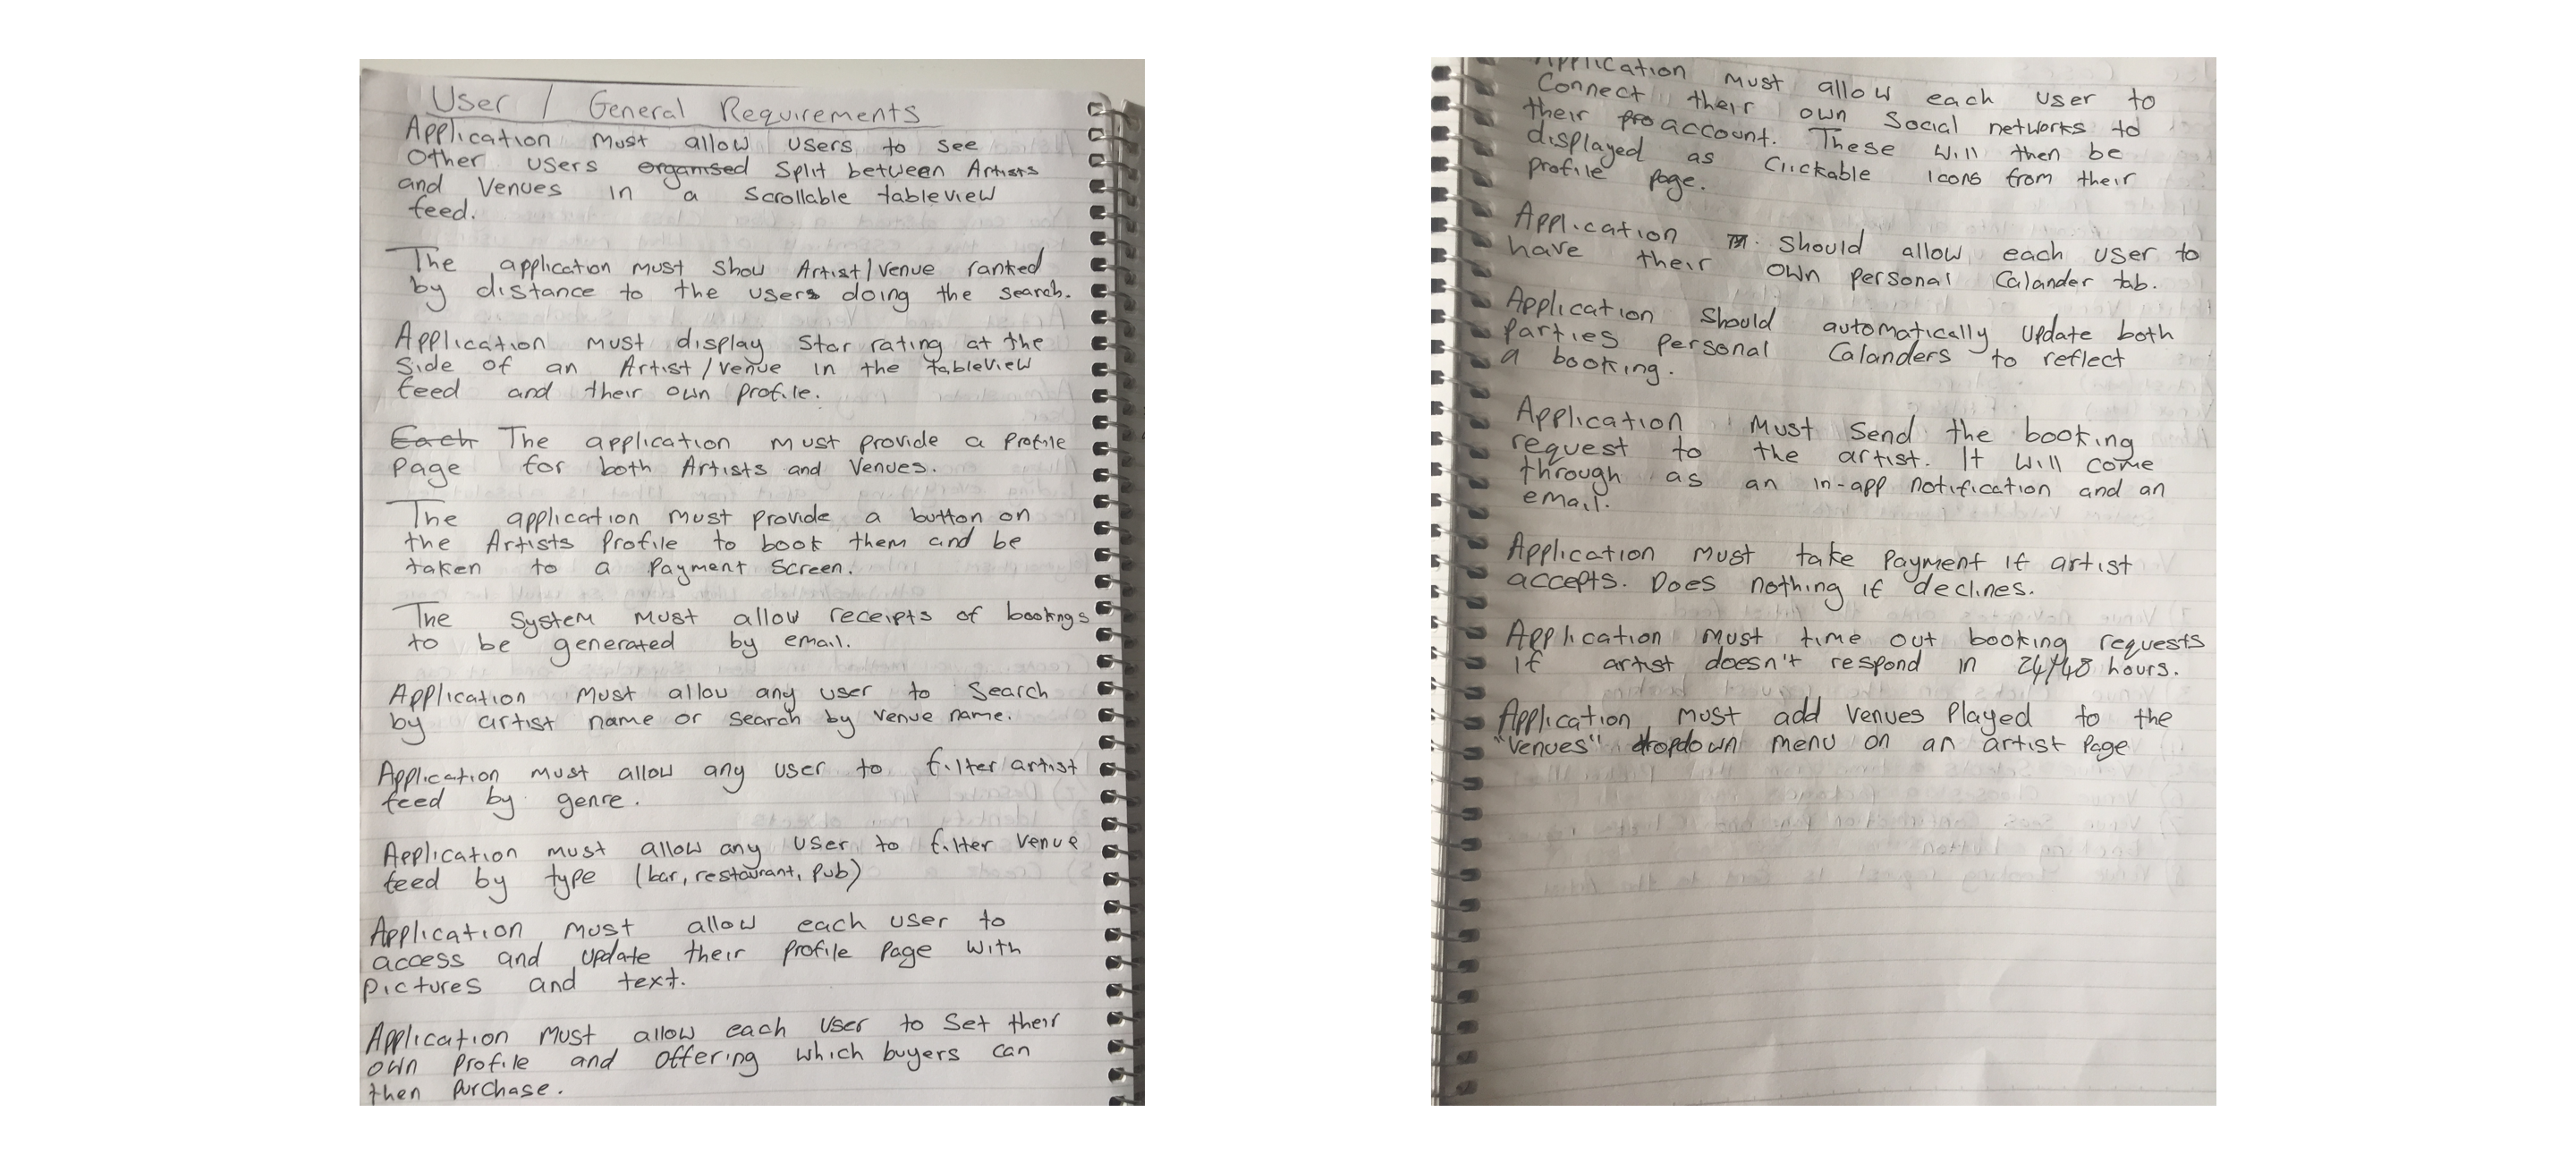 User / General Requirements
Application must allow users to see
Other users organised Split between Artists
and Venues in a Scrollable tableview
feed.
The application must show Artist/Venue ranked
by distance to the users doing the search.
Application must display Star rating at the
Side of an Artist/Venue in the tableview
feed and their own profile.
Each The application must provide a Profile
Page for both Artists and Venues.
The application must provide a button on
the Artists Profile to book them and be
taken to a Payment Screen.
The System must allow receipts of bookings
to be generated by email.
Application must allow any user to Search
by artist name or search by venue name.
Application must allow any user to filter artist
feed by genre.
Application must allow any user to filter Venue
feed by type (bar, restaurant, pub)
Application must allow each user to
access and update their profile Page with
Pictures and text.
Application must allow each user to Set their
own Profile and offering which buyers can
then purchase.
Application must allow each user to
Connect their own Social networks to
their pro account. These will then be
displayed as Clickable icons from their
profile page.
Application should allow each user to
have their own personal Calander tab.
Application Should automatically update both
parties personal Calanders to reflect
a booking.
Application Must Send the booking
request to the artist. It will come
through as an in-app notification and an
email.
Application must take Payment if artist
accepts. Does nothing if declines.
Application must time out booking requests
if artist doesn't respond in 24/48 hours.
Application must add Venues Played to the
"Venues" dropdown menu on an artist Page